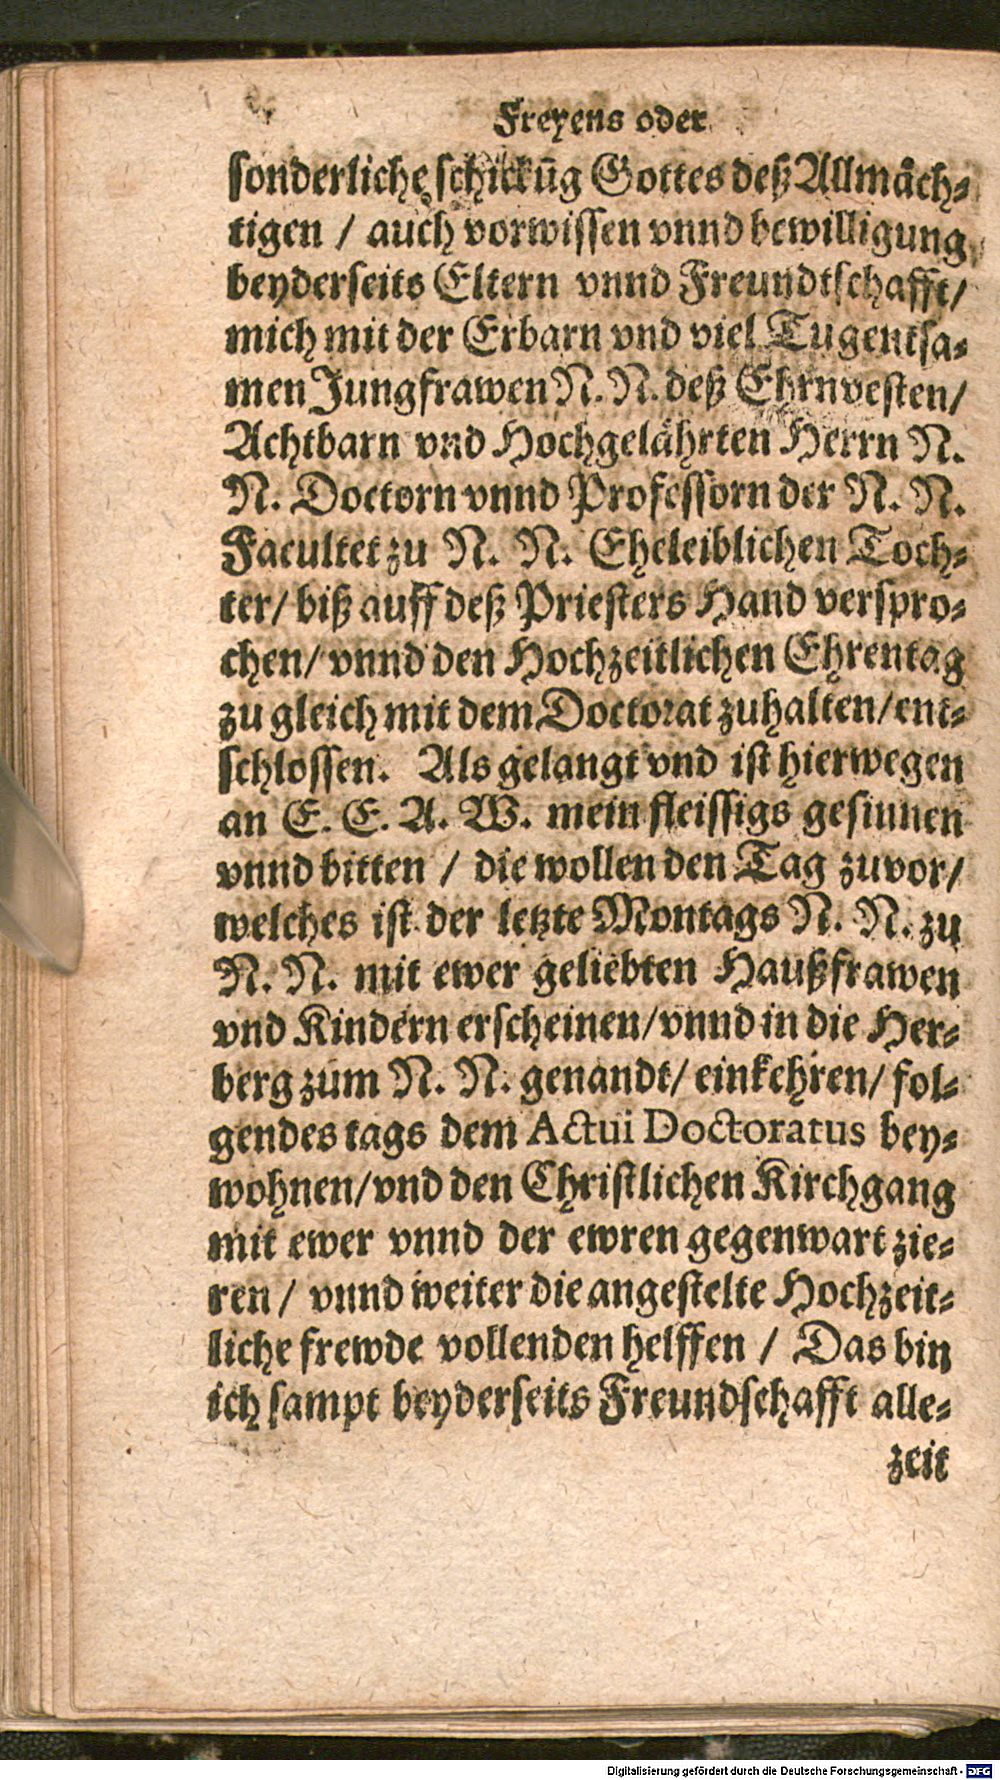 Freyens oder
sonderliche schickũg Gottes deß Allmåch⸗
tigen / auch vorwissen vnnd bewilligung
beyderseits Eltern vnnd Freundtschafft/
mich mit der Erbarn vnd viel Tugentsa⸗
men Jungfrawen N. N. deß Ehrnvesten/
Achtbarn vnd Hochgelåhrten Herrn N.
N. Doctorn vnnd Professorn der N. N.
Facultet zu N. N. Eheleiblichen Toch⸗
ter/ biß auff deß Priesters Hand verspro⸗
chen/ vnnd den Hochzeitlichen Ehrentag
zu gleich mit dem Doctorat zuhalten/ ent⸗
schlossen. Als gelangt vnd ist hierwegen
an E. E. A. W. mein fleissigs gesinnen
vnnd bitten / die wollen den Tag zuvor/
welches ist der letzte Montags N. N. zu
N. N. mit ewer geliebten Haußfrawen
vnd Kindern erscheinen/ vnnd in die Her⸗
berg zum N. N. genandt/ einkehren/ fol⸗
gendes tags dem Actui Doctoratus bey⸗
wohnen/ vnd den Christlichen Kirchgang
mit ewer vnnd der ewren gegenwart zie⸗
ren / vnnd weiter die angestelte Hochzeit⸗
liche frewde vollenden helffen / Das bin
ich sampt beyderseits Freundschafft alle⸗
zeit
Digitalisierung gefördert durch die Deutsche Forschungsgemeinschaft - DFG